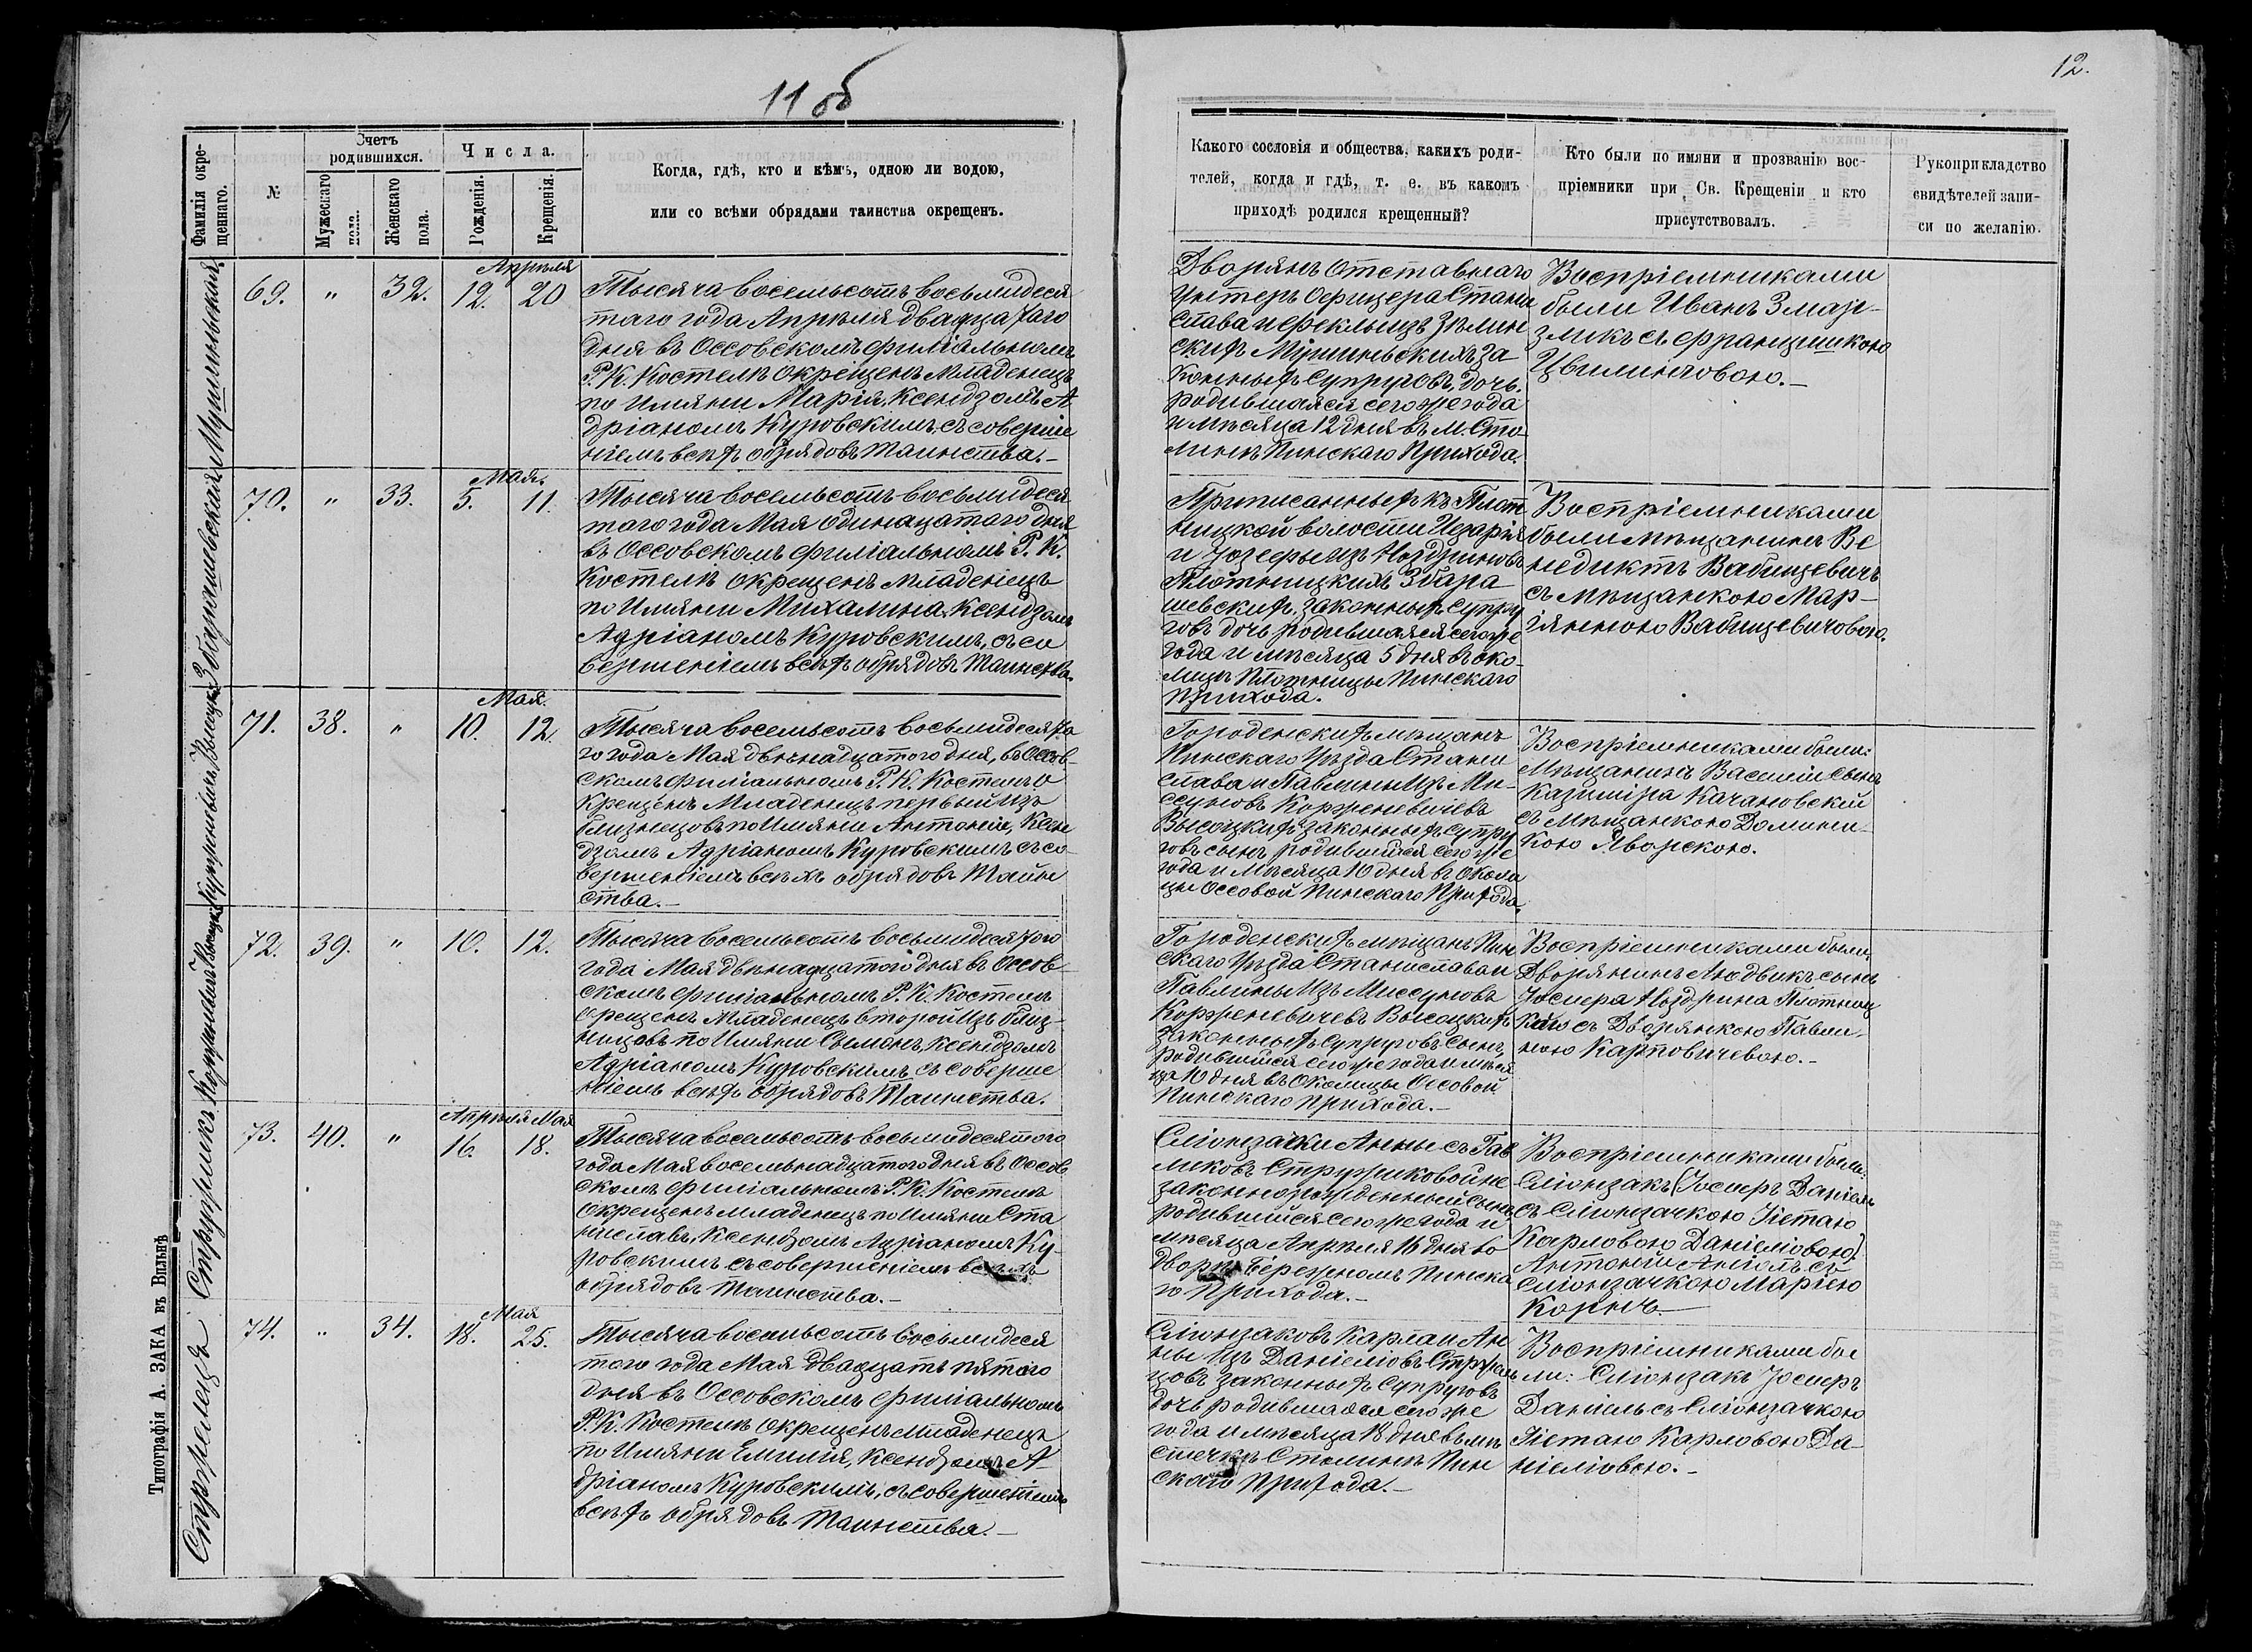 11 об
12.
Фамилія окре-
щеннаго.
№
Счетъ
родившихся.
Мужескаго
пола.
Женскаго
пола.
Числа.
Рожденія.
Крещенія.
Когда, гдѣ, кто и кѣмъ, одною ли водою,
или со всѣми обрядами таинства окрещенъ.
Какого сословія и общества, какихъ роди-
телей, когда и гдѣ, т. е. въ какомъ
приходѣ родился крещенный?
Кто были по имяни и прозванію вос-
пріемники при Св. Крещеніи и кто
присутствовалъ.
Рукоприкладство
свидѣтелей запи-
си по желанію.
Апрѣля
69. " 32. 12. 20
Тысяча восемьсотъ восьмидеся
таго года Апрѣля двадцатаго
дня въ Оссовскомъ филіальномъ
Р. К. Костелѣ окрещенъ младенецъ
по имяни Марія, Ксендзомъ А
дріаномъ Куровскимъ, съ соверше
ніемъ всѣхъ обрядовъ таинства.—
Дворянъ отставнаго
Унтеръ Офицера Стани
слава и Феклы изъ Зѣлин
скихъ за
конныхъ супруговъ, дочь
родившаяся сего же года
и мѣсяца 12 дня въ м. Сто-
линѣ Пинскаго Прихода.
Воспріемниками
были Иванъ
съ Францишкою
Мая.
70. " 33. 5. 11.
Збарашевская
Тысяча восемьсотъ восьмидеся
таго года Мая одинацатаго дня
въ Оссовскомъ филіальномъ Р. К.
Костелѣ окрещенъ младенецъ
по имяни Михалина, Ксендзомъ
Адріаномъ Куровскимъ, съ со
вершеніемъ всѣхъ обрядовъ таинства.
Приписанныхъ къ Плот
ницкой волости Цезарія
и Юзефы изъ Ноздриновъ
Плотницкихъ Збара
шевскихъ, законныхъ супру
говъ дочь родившаяся сего же
года и мѣсяца 5 дня въ око-
лицѣ Плотницы Пинскаго
прихода.
Воспріемниками
были мѣщанинъ Ве
недиктъ Вабищевичъ
съ мѣщанкою Мар-
іянною Вабищевичовою.
Мая.
71. 38. " 10. 12.
Корженевичъ Высоцкій
Тысяча восемьсотъ восьмидесята
го года Мая двѣнадцатого дня, въ Оссов-
скомъ филіальномъ Р. К. Костелѣ о
крещенъ младенецъ первый изъ
близнецовъ по имяни Антоній, Ксен
дзомъ Адріаномъ Куровскимъ съ со-
вершеніемъ всѣхъ обрядовъ Таин
ства.—
Городенскихъ мѣщанъ
Пинскаго Уѣзда Стани
слава и Павлины изъ Ми-
ссуновъ Корженевичевъ
Высоцкихъ законныхъ супру
говъ сынъ родившійся сего же
года и мѣсяца 10 дня въ околи
цы Оссовой Пинскаго Прихода.
Воспріемниками были:
Мѣщанинъ Василій сынъ
Казиміра Качановскій
съ мѣщанкою Домини-
кою Яворскою.
72. 39. " 10. 12.
Корженевичъ Высоцкій
Тысяча восемьсотъ восьмидесятого
года Мая двѣнадцатого дня въ Оссов-
скомъ филіальномъ Р. К. Костелѣ
окрещенъ младенецъ второй изъ близ-
нецовъ по имяни Сымонъ, Ксендзомъ
Адріаномъ Куровскимъ, съ соверше
ніемъ всѣхъ обрядовъ Таинства.
Городенскихъ мѣщанъ Пин
скаго Уѣзда Станислава и
Павлины изъ Миссуновъ
Корженевичевъ Высоцкихъ
законныхъ супруговъ сынъ
родившійся сего же года и мѣся
ца 10 дня въ Околицы Оссовой
Пинскаго прихода.—
Воспріемниками были:
Дворянинъ Людвикъ сынъ
Іосифа Ноздрина Плотниц
кого съ Дворянкою Павли-
ною Карповичевою.—
Апрѣля Мая
73. 40. " 16. 18.
Стружикъ
Тысяча восемьсотъ восьмидесятого
года Мая восемьнадцатого дня въ Оссов
скомъ филіальномъ Р. К. Костелѣ
окрещенъ младенецъ по имяни Ста
ниславъ, Ксендзомъ Адріаномъ Ку-
ровскимъ съ совершеніемъ всѣхъ
обрядовъ таинства.—
Слонзачки Анны съ Гав
ликовъ Стружиковой не
законнорожденный сынъ
родившійся сего же года и
мѣсяца Апрѣля 16 дня во
дворѣ Бережномъ Пинска
го Прихода.—
Воспріемниками были:
Слонзакъ (Іосифъ Даніель
съ Слонзачкою
Карловою Даніеліовою)
Антоній съ
Слонзачкою Маріею
Мая
74. " 34. 18. 25.
Стржелецъ
Тысяча восемьсотъ восьмидеся
того года Мая двадцать пятого
дня въ Оссовскомъ филіальномъ
Р. К. Костелѣ окрещенъ младенецъ
по имяни Емилія, Ксендзомъ А-
дріаномъ Куровскимъ, съ совершеніемъ
всѣхъ обрядовъ таинства.—
Слонзаковъ Карла и Ан
ны изъ Даніеліовъ Стржель
цовъ законныхъ супруговъ
дочь родившаяся сего же
года и мѣсяца 18 дня въ мѣ
стечкѣ Столинѣ Пин
скаго прихода.—
Воспріемниками бы
ли: Слонзакъ Іосифъ
Даніель съ Слонзачкою
Карловою Да-
ніеліовою.—
Типографія А. ЗАКА въ Вильнѣ